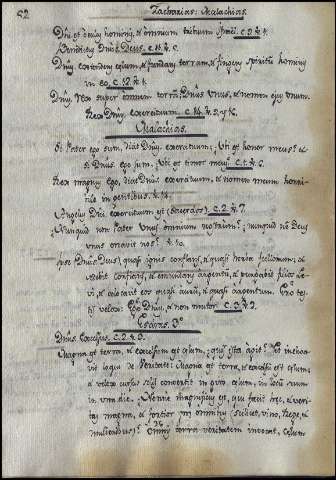 52 Zacharias: Malachias.
Dñi est oculus hominis, et omnium tribuum Israël. C. 9. ℣. 1.
Dñus Deus. C. 11. ℣. 4.
Dñus, extendens cęlum, et fundans terram, et fingens spiritũ hominis
in eo. C. 12. ℣. 1.
Dñus Rex super omnem terrã: Dñus unus, et nomen ejus unum.
Rex Dñus exercituum. C. 14. ℣. 9. et 16.
Malachias.
Si Pater ego sum, dicit Dñus exercituum; ubi est honor meus? et
si Dñus ego sum, ubi est timor meus? C. 1. ℣. 6.
Rex magnus ego, dicit Dñus exercituum, et nomen meum horri-
bile in gentibus. ℣. 14.
Angelus Dñi exercituum est (Sacerdos). C. 2. ℣. 7.
Nunquid non Pater unus omnium nostrum? nunquid nõ Deus
unus creavit nos? ℣. 10.
Ipse (Dñus Deus) quasi ignis conflans, et quasi herba fullonum; et
sedebit conflans, et emundans argentũ, et purgabit filios Le-
vi, et colabit eos quasi aurũ, et quasi argentum. Ero tes-
tis velox: Ego Dñus, et non mutor. C. 3. ℣. 2.
Esdras. 3º
Dñus Excelsus.
Magna est terra, et excelsum est cęlum; quis ista agit? Et incho-
avit loqui de Veritate: Magna est terra, et excelsũ est cęlum,
et velox cursus solis convertit in gyro cęlum, in locũ suum
in una die. Nonne magnificus est, qui facit hęc, et veri-
tas magna, et fortior prę omnibus (scilicet, vino, Rege, et
mulieribus)? Omnis terra veritatem invocat, cęlum